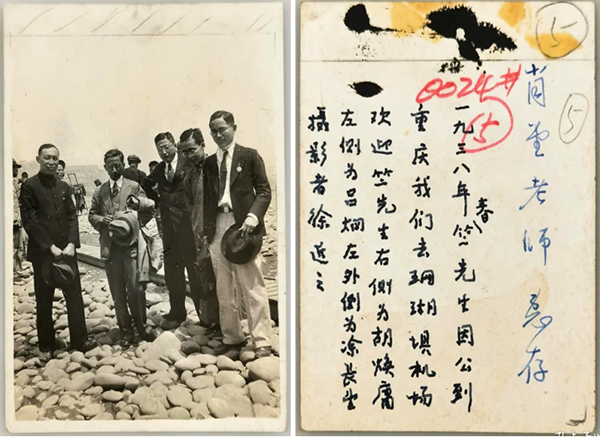 5
5
0024#
15
肖 老师 惠存
一九三八年春竺先生因公到
重庆我们去珊瑚坝机场
欢迎竺先生右侧为胡焕庸
左侧为吕炯左外侧为涂长望
摄影者徐近之